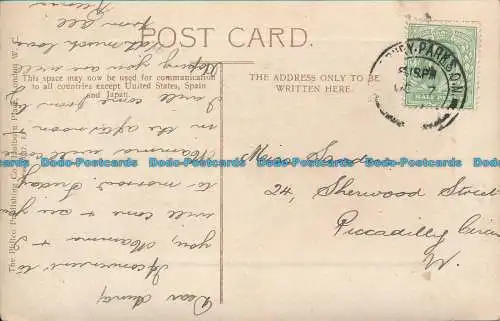 POST CARD.
This space may now be used for communication
to all countries except United States, Spain
and Japan.
THE ADDRESS ONLY TO BE
WRITTEN HERE.
The Philco Publishing Co., Holborn Place, London W.C.
Dear Aunty
If convenient to
you, Mamma & I
will come & see you
to-morrow Friday
Mamma will come
in the afternoon &
I will come from
Hoping you are well
with much love
from all
Miss
24, Sherwood Street
Piccadilly Circus
W.
Dodo-Postcards Dodo-Postcards Dodo-Postcards Dodo-Postcards Dodo-Postcards